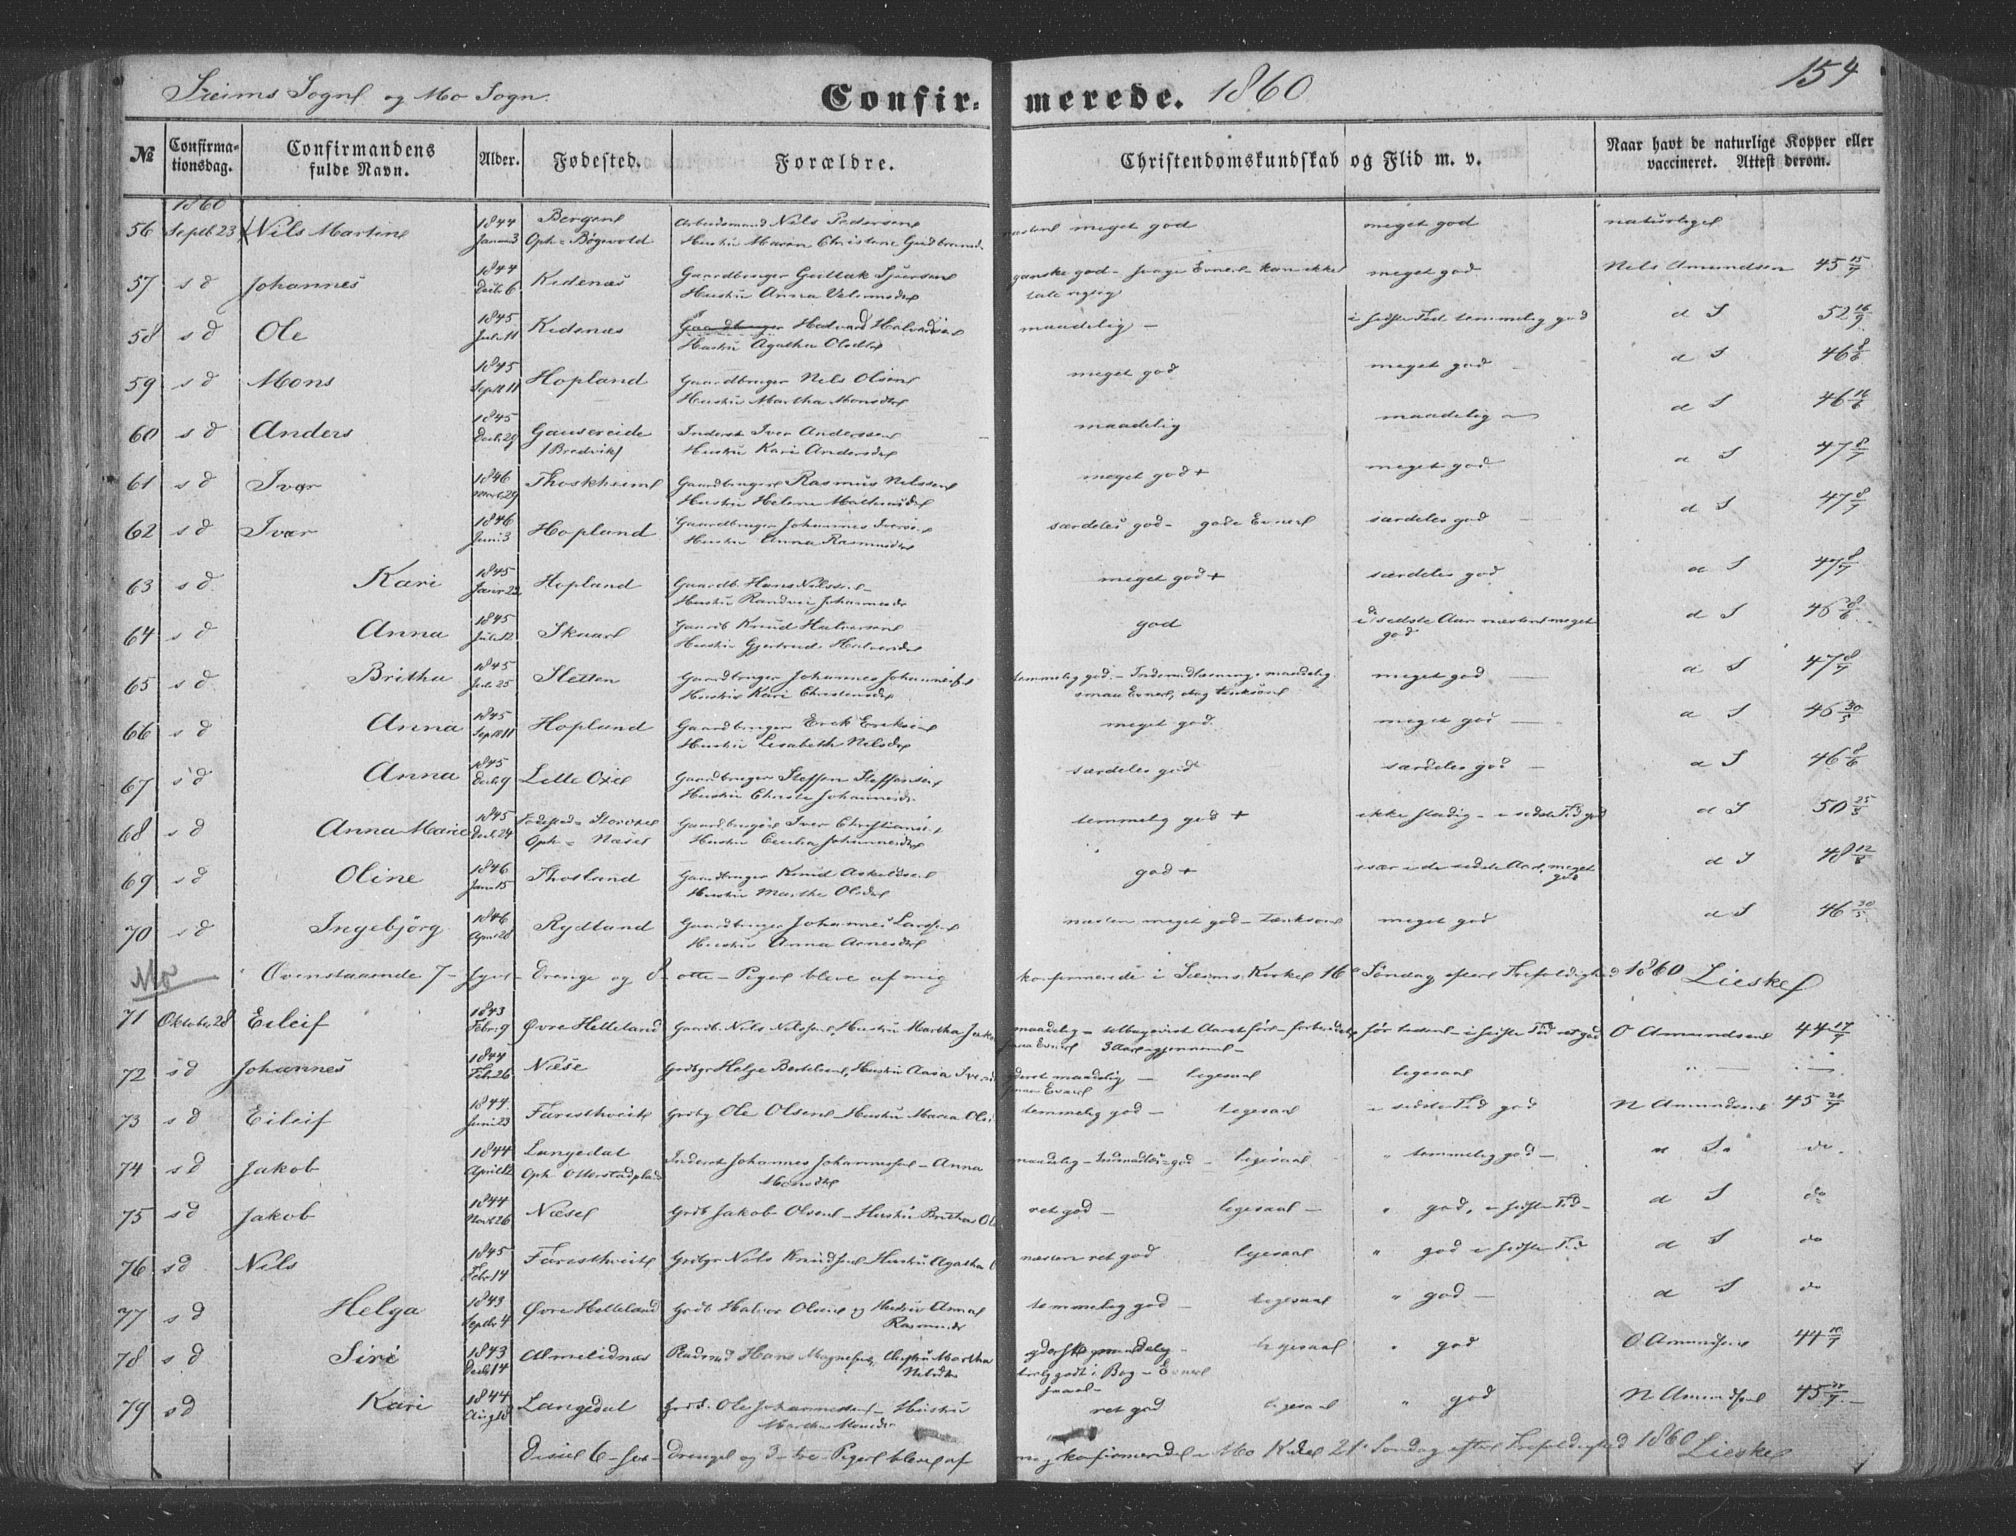 Seims Sogn og Mo Sogn. Confirmerede. 1860 154
№ Confirmationsdag. Confirmandens fulde Navn. Alder. Fødested. Forældre. Christendomskundskab og Flid m. v. Naar havt de naturlige Kopper eller vaccineret. Attest derom.
1860
56 Septb 23 Nils Martin 1844 Januar 3 Bergen Oph: Bøgevold Arbeidsmand Nils Pedersen Hustru Maren Christine meget god meget god naturlige
57 s d Johannes 1844 Decb. 6 Kidenæs Gaardbruger Hustru Anna ganske god - svage Evner - kan ikke tale rigtig meget god Nils Amundsen 45 15/7
58 s d Ole 1845 Juli 11 Kidenæs Gaardbruger Halvard Halvardsen Hustru Agatha Olsdtr maadelig - i sidste Tid temmelig god d S 52 16/9
59 s d Mons 1845 Septb 11 Hopland Gaardbruger Nils Olsen Hustru Martha Monsdtr meget god meget god d S 46 8/6
60 s d Anders 1845 Decb. 29 Gausereide /Bredvik/ Inderst Iver Andersen Hustru Kari Andersdtr maadelig maadelig d S 46 16/6
61 s d Ivar 1846 Marts 29 Throskheim Gaardbruger Rasmus Nilssen Hustru Helena meget god + meget god d S 47 8/7
62 s d Ivar 1846 Juni 3 Hopland Gaardbruger Johannes Iversen Hustru Anna Rasmusdtr særdeles god - gode Evner særdeles god d S 47 8/7
63 s d Kari 1845 Januar 22 Hopland Gaardb. Hans Nilssen - Hustru Randvei Johannesdr meget god + særdeles god d S 47 8/7
64 s d Anna 1845 Juli 12 Skaar Gaardb Knud Halvorsen Hustru Gjertrud Halvorsdr god i de sidste Aar næsten meget god d S 46
65 s d Britha 1845 Juli 25 Sletten Gaardbruger Johannes Johannessen Hustru Kari Christensdtr temmelig god - Indenadlæsning maadelig smaa Evner, dog tænksom meget god d S 47 8/7
66 s d Anna 1845 Septb 11 Hopland Gaardbruger Erik Eriksen Hustru Lisabeth Nilsdtr meget god. meget god d S 46 30/5
67 s d Anna 1845 Decb. 9 Lille Oxe Gaardbruger Steffen Steffensen Hustru Christi Johannesdr. særdeles god særdeles god d S 46 8/6
68 s d Anna Marie 1845 Decb. 24 Fødested = Storoxe Oph = Næse Gaardbruger Iver Christians. Hustru Cecilia Johannesdtr temmelig god + ikke stadig - i sidste Tid god d S 50 25/5
69 s d Oline 1846 Janr 15 Thoslund Gaardbruger Knud Askeldsen Hustru Marthe Olsdtr god + især i de sidste Aar meget god d S 48 12/8
70 s d Ingebjørg 1846 April 28 Rydland Gaardbruger Johannes Larssen Hustru Anna Arnesdtr næsten meget god - tænksom meget god d S 46 30/5
Mo Ovenstaaende 7 - syv - Drenge og 8 - otte - Piger bleve af mig konfirmerede i Seims Kirke 16e Søndag efter Trefoldighed 1860 Lieske
71 Oktober 28 Eileif 1843 Febr. 9 Øvre Helleland Gaardb. Nils Nilssen, Hustru Martha Jako maadelig - tilbagevist Aaret før - 3 Aar igjennem - før ladent - i sidste Tid ret god O Amundsen 44 17/7
72 s d Johannes 1844 Febr. 26 Næse Grdbgr Helge Bertelsen, Hustru Aasa Iversd yderst maadelig - ligesaa ligesaa
73 s d Eileif 1844. Juni 23 Faresthveit Grdbg Ole Olsen - Hustru Maria Ols temmelig god - ligesaa i sidste Tid god N Amundsen 45 21/7
74 s d Jakob 1844 April 12 Langedal Oph Otterstadplads Inderst Johannes Johannessen - Anna Monsdtr maadelig - god - ligesaa " temmelig god - d S. do.
75 s d Jakob 1844 Novb 26 Næse Grdb Jakob Olsen - Hustru Britha Ol ret god - ligesaa - " god, i sidste Tid - d S do
76 s d Nils 1845 Febr 14 Faresthveit Grdbgr Nils Knudsen Hustru Agatha næsten ret god ligesaa " god i sidste Tid d S do
77 s d Helga 1843 Septbr 4 Øvre Helleland Grdb Halvor Olsen og Hustru Anna Rasmusdr temmelig god - ligesaa " god - d S do
78 s d Siri 1843 Decb 14 Almelidnæs Hans Magnesen, Hustru Martha Nilsdtr yderst maadelig - i Bog - Evner smaa - ligesaa " god O Amundsen 44
79 s d Kari 1844 Aug 18 Langedal Grdb. Ole Johannessen - Hustru Martha Monsdr ret god ligesaa " god N Amundsen 45
Disse 6 - sex - Drenge og 3 - tre - Piger bleve af mig konfirmerede i Mo Kirke 21e Søndag efter Trefoldighed 1860 Lieske